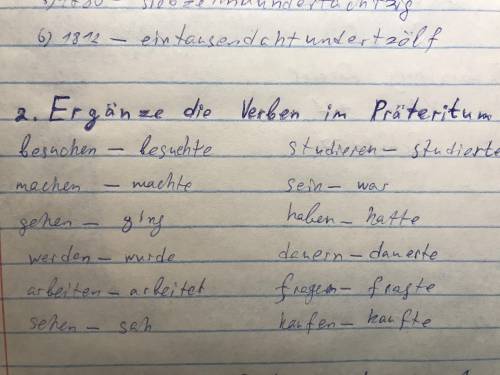 6) 1812 – eintausendachtundertzölf
2. Ergänze die Verben im Präteritum
besuchen – besuchte studieren – studierte
machen – machte sein – war
gehen – ging haben – hatte
werden – wurde dauern – dauerte
arbeiten – arbeitet fragen – fragte
sehen – sah kaufen – kaufte